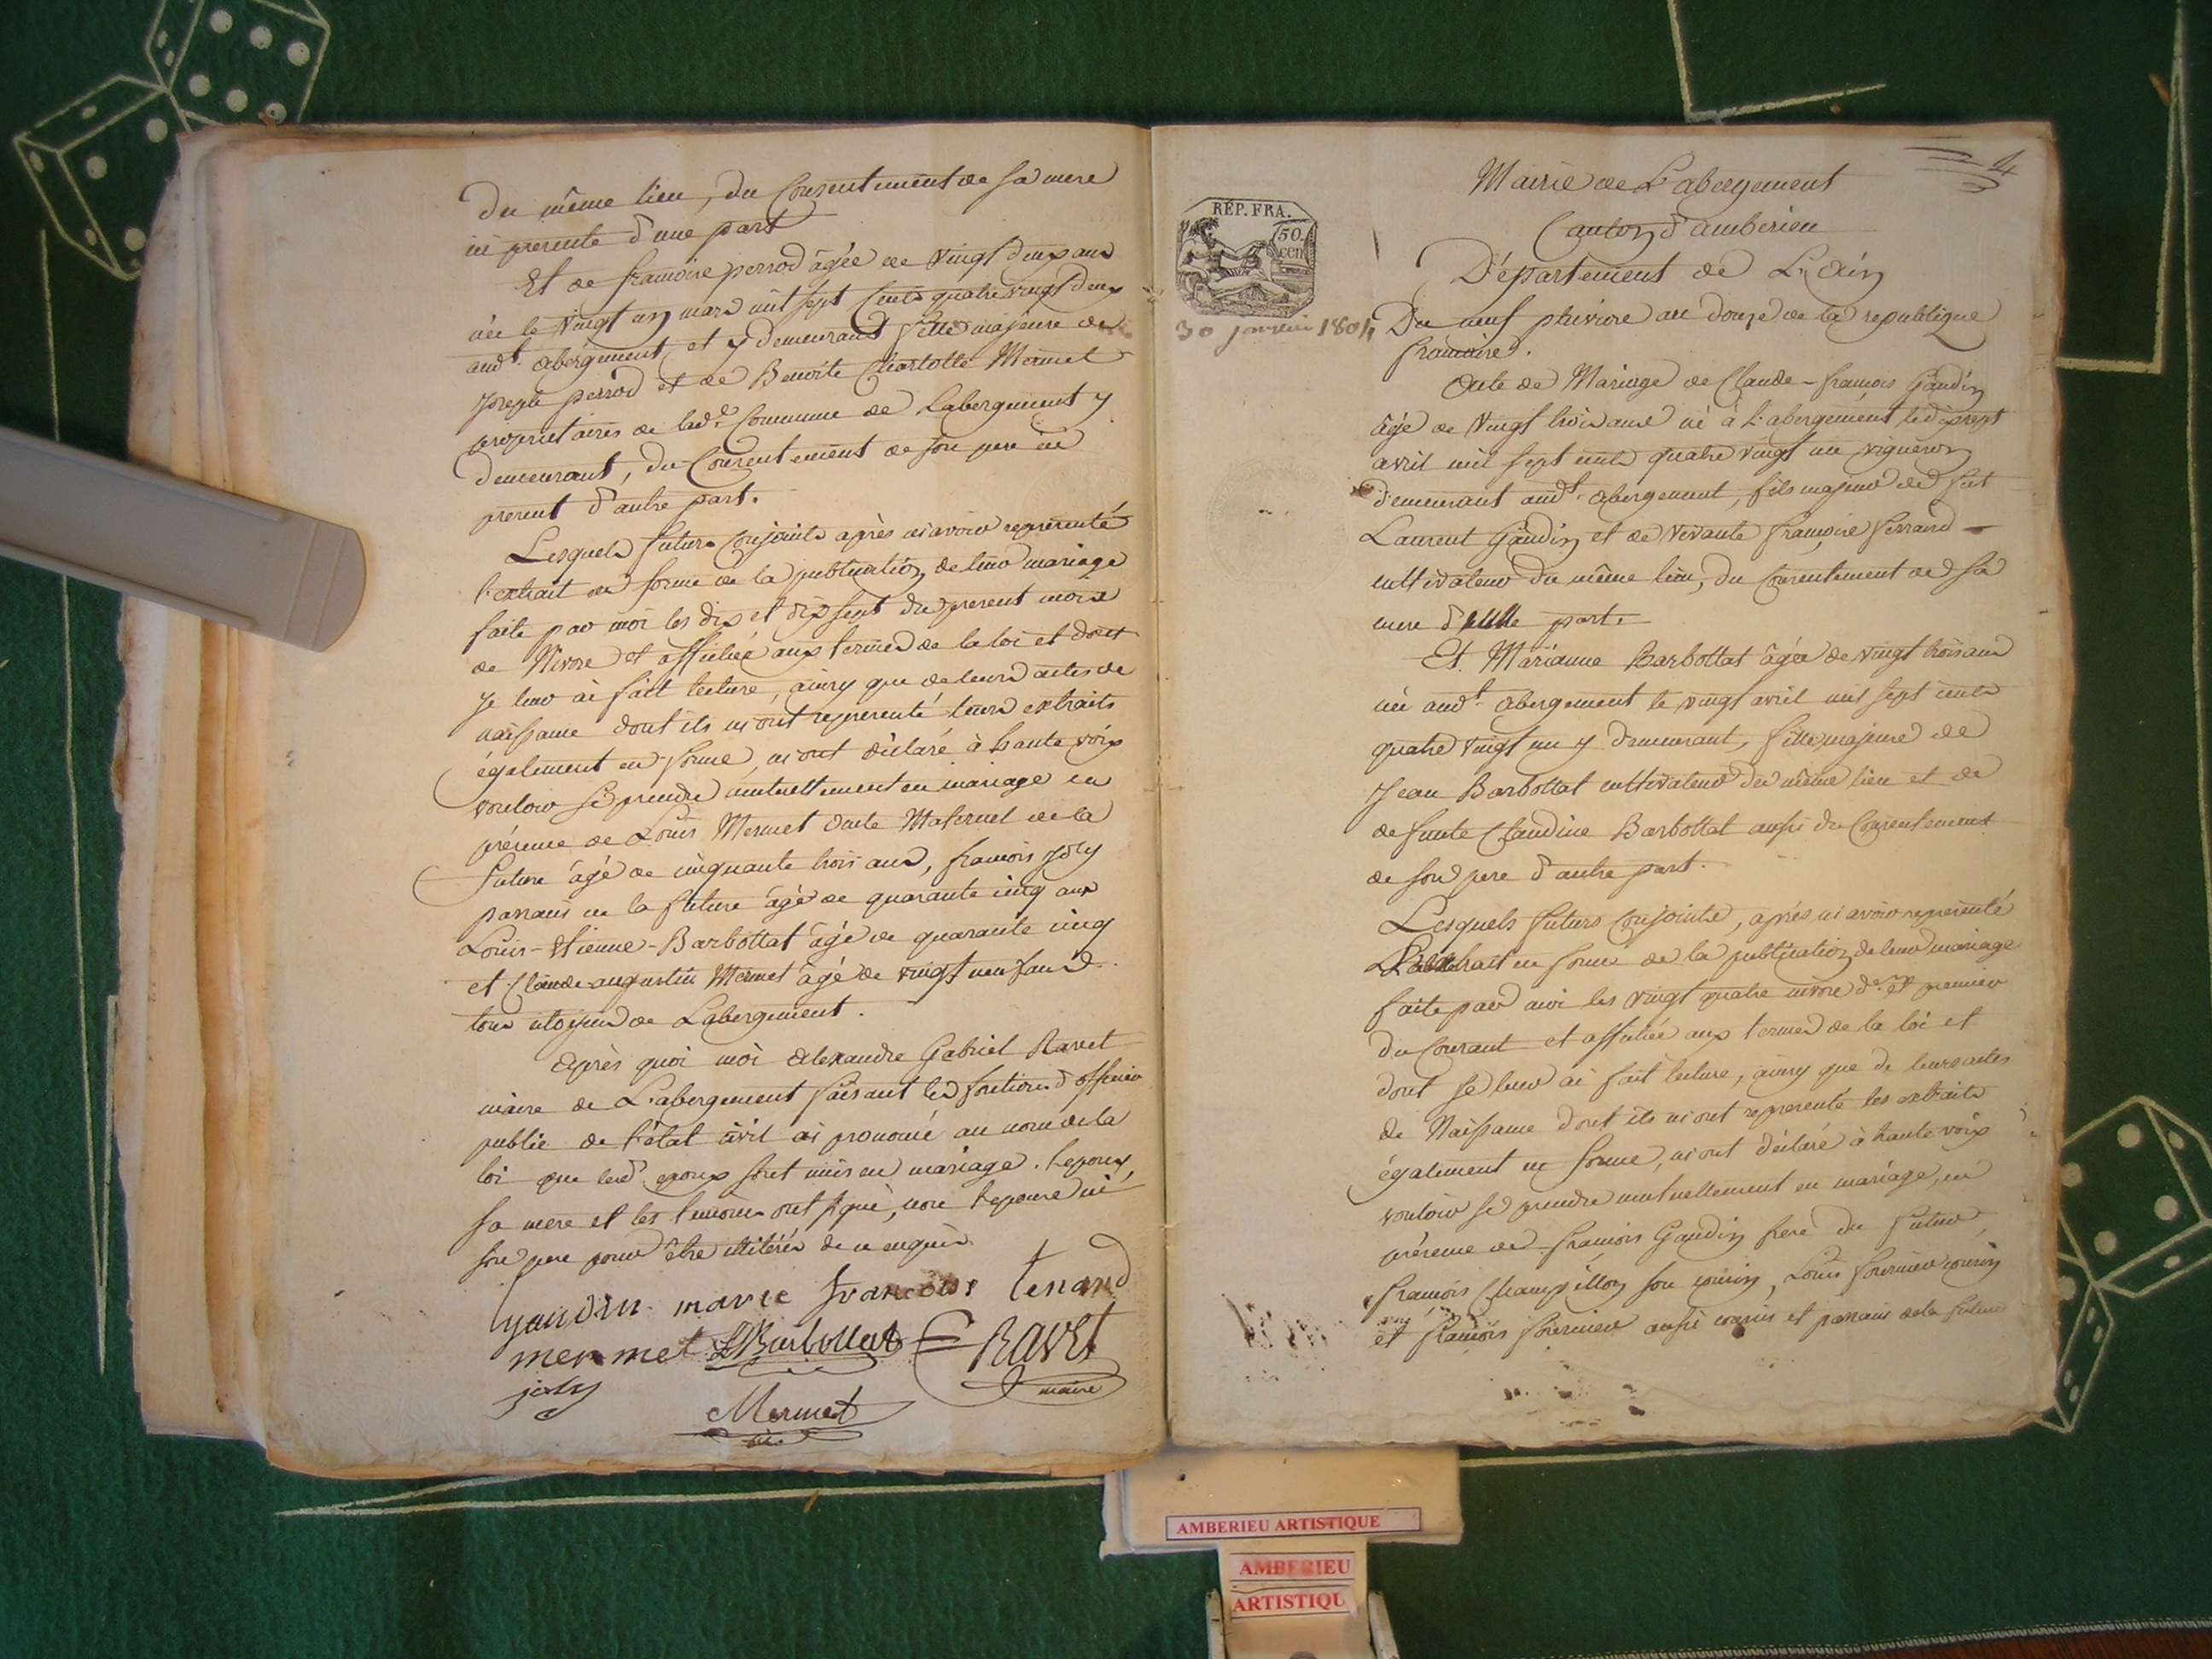 du même lieu, du Consentement de sa mere
ici presente d'une part
Et de francoise perrod âgée de vingt deux ans
née le vingt un mars mil sept Cents quatre vingt deux
audt. abergement et y demeurant fille majeure de
joseph perrod et de Benoite Charlotte Mermet
proprietaires de lade. Commune de Labergement y
demeurant, du Consentement de son pere ici
present d'autre part.
Lesquels futurs Conjoints après m'avoir representé
l'extrait en forme de la publication de leur mariage
faite par moi les dix et dix sept du present mois
de Nivose et affichée aux termes de la loi et dont
je leur ai fait lecture, ainsy que de leurs actes de
naissance dont ils m'ont representé leurs extraits
également en forme, m'ont déclaré à haute voix
vouloir se prendre mutuellement en mariage en
présence de Louis Mermet oncle Maternel de la
future âgé de cinquante trois ans, francois joly
parrain de la future âgé de quarante cinq ans
Louis-Etienne-Barbottat âgé de quarante cinq
et Claude augustin Mermet âgé de vingt neuf ans
tous citoyens de Labergement.
Après quoi moi Alexandre Gabriel Ravet
maire de L'abergement faisant les fonctions d'officier
public de l'état civil ai prononcé au nom de la
loi que lesd. epoux sont unis en mariage. Lepoux,
sa mere et les temoins ont signé, non Lepouse ni
son pere pour être illitérés de ce enquis
gaudin marie francoise tenand
mermet LBarbottat RAVET
joly maire
Mermet
4
Mairie de L'abergement
Canton d'ambérieu
Département de L'Ain
RÉP. FRA.
50.
cen
30 janvier 1804
Du neuf pluviose an douze de la republique
francaise.
Acte de Mariage de Claude-francois Gaudin
âgé de vingt trois ans né à L'abergement le dix sept
avril mil sept cents quatre vingt un vigneron
demeurant audt. abergement, fils majeur de feu
Laurent Gaudin et de vivante francoise ferrand
cultivateur du même lieu, du Consentement de sa
mere d'une part.
Et Marianne Barbottat âgée de vingt trois ans
née audt. abergement le vingt avril mil sept cents
quatre vingt un y demeurant, fille majeure de
Jean Barbottat cultivateur du même lieu et de
defunte Claudine Barbottat aussi du Consentement
de son pere d'autre part.
Lesquels futurs Conjoints, après m'avoir representé
L'extrait en forme de la publication de leur mariage
faite par moi les vingt quatre nivose dr. et premier
du Courant et affichée aux termes de la loi et
dont je leur ai fait lecture, ainsy que de leurs actes
de Naissance dont ils m'ont representé les extraits
également en forme, m'ont déclaré à haute voix
vouloir se prendre mutuellement en mariage, en
présence de francois Gaudin frere du futur,
francois Champillon son cousin, Louis fournier cousin
et francois fournier aussi cousin et parrain de la future
AMBERIEU ARTISTIQUE
AMBERIEU
ARTISTIQU